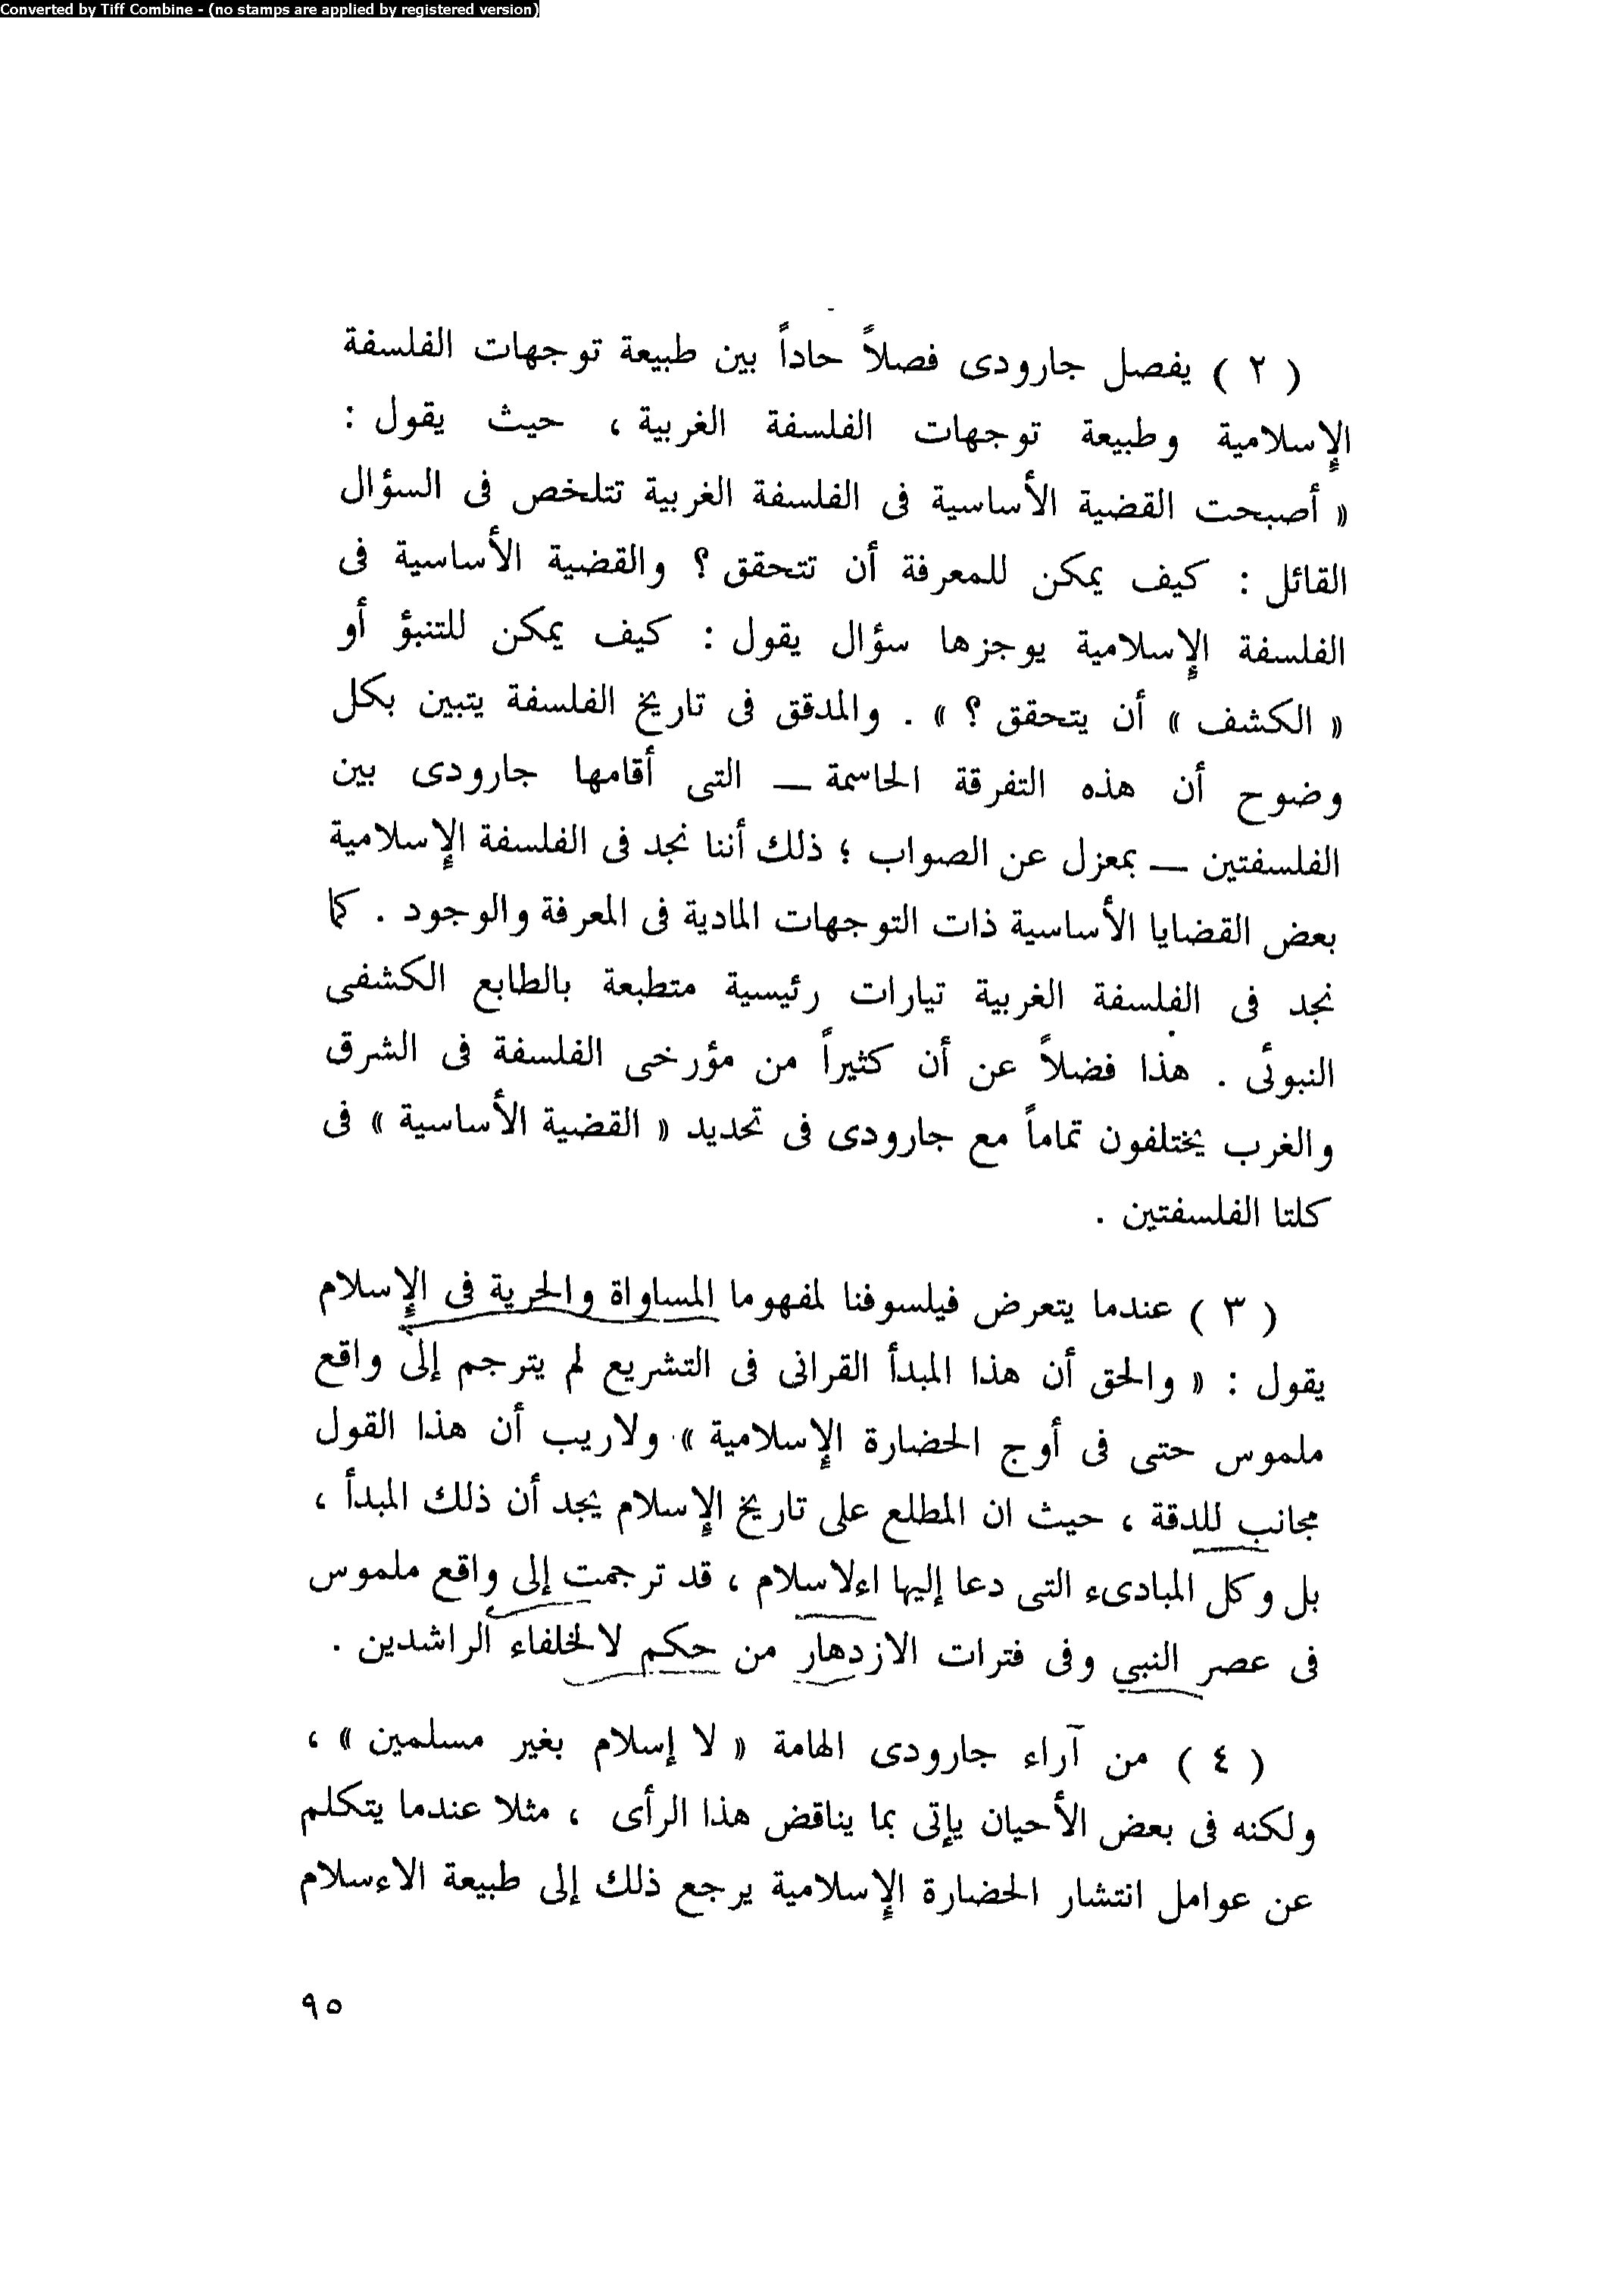 Converted by Tiff Combine - (no stamps are applied by registered version)
( ٢ ) يفصل جارودى فصلاً حاداً بين طبيعة توجهات الفلسفة
الإسلامية وطبيعة توجهات الفلسفة الغربية ، حيث يقول :
« أصبحت القضية الأساسية فى الفلسفة الغربية تتلخص فى السؤال
القائل : كيف يمكن للمعرفة أن تتحقق ؟ والقضية الأساسية فى
الفلسفة الإسلامية يوجزها سؤال يقول : كيف يمكن للتنبؤ أو
« الكشف » أن يتحقق ؟ » . والمدقق فى تاريخ الفلسفة يتبين بكل
وضوح أن هذه التفرقة الحاسمة — التى أقامها جارودى بين
الفلسفتين — بمعزل عن الصواب ؛ ذلك أننا نجد فى الفلسفة الإسلامية
بعض القضايا الأساسية ذات التوجهات المادية فى المعرفة والوجود . كما
نجد فى الفلسفة الغربية تيارات رئيسية متطبعة بالطابع الكشفى
النبوئى . هذا فضلاً عن أن كثيراً من مؤرخى الفلسفة فى الشرق
والغرب يختلفون تماماً مع جارودى فى تحديد « القضية الأساسية » فى
كلتا الفلسفتين .
( ٣ ) عندما يتعرض فيلسوفنا لمفهوما المساواة والحرية فى الإسلام
يقول : « والحق أن هذا المبدأ القرانى فى التشريع لم يترجم إلى واقع
ملموس حتى فى أوج الحضارة الإسلامية » ولاريب أن هذا القول
مجانب للدقة ، حيث ان المطلع على تاريخ الإسلام يجد أن ذلك المبدأ ،
بل وكل المبادىء التى دعا إليها اءلاسلام ، قد ترجمت إلى واقع ملموس
فى عصر النبي وفى فترات الازدهار من حكم لالخلفاء الراشدين .
( ٤ ) من آراء جارودى الهامة « لا إسلام بغير مسلمين » ،
ولكنه فى بعض الأحيان يإتى بما يناقض هذا الرأى ، مثلا عندما يتكلم
عن عوامل انتشار الحضارة الإسلامية يرجع ذلك إلى طبيعة الاءسلام
٩٥